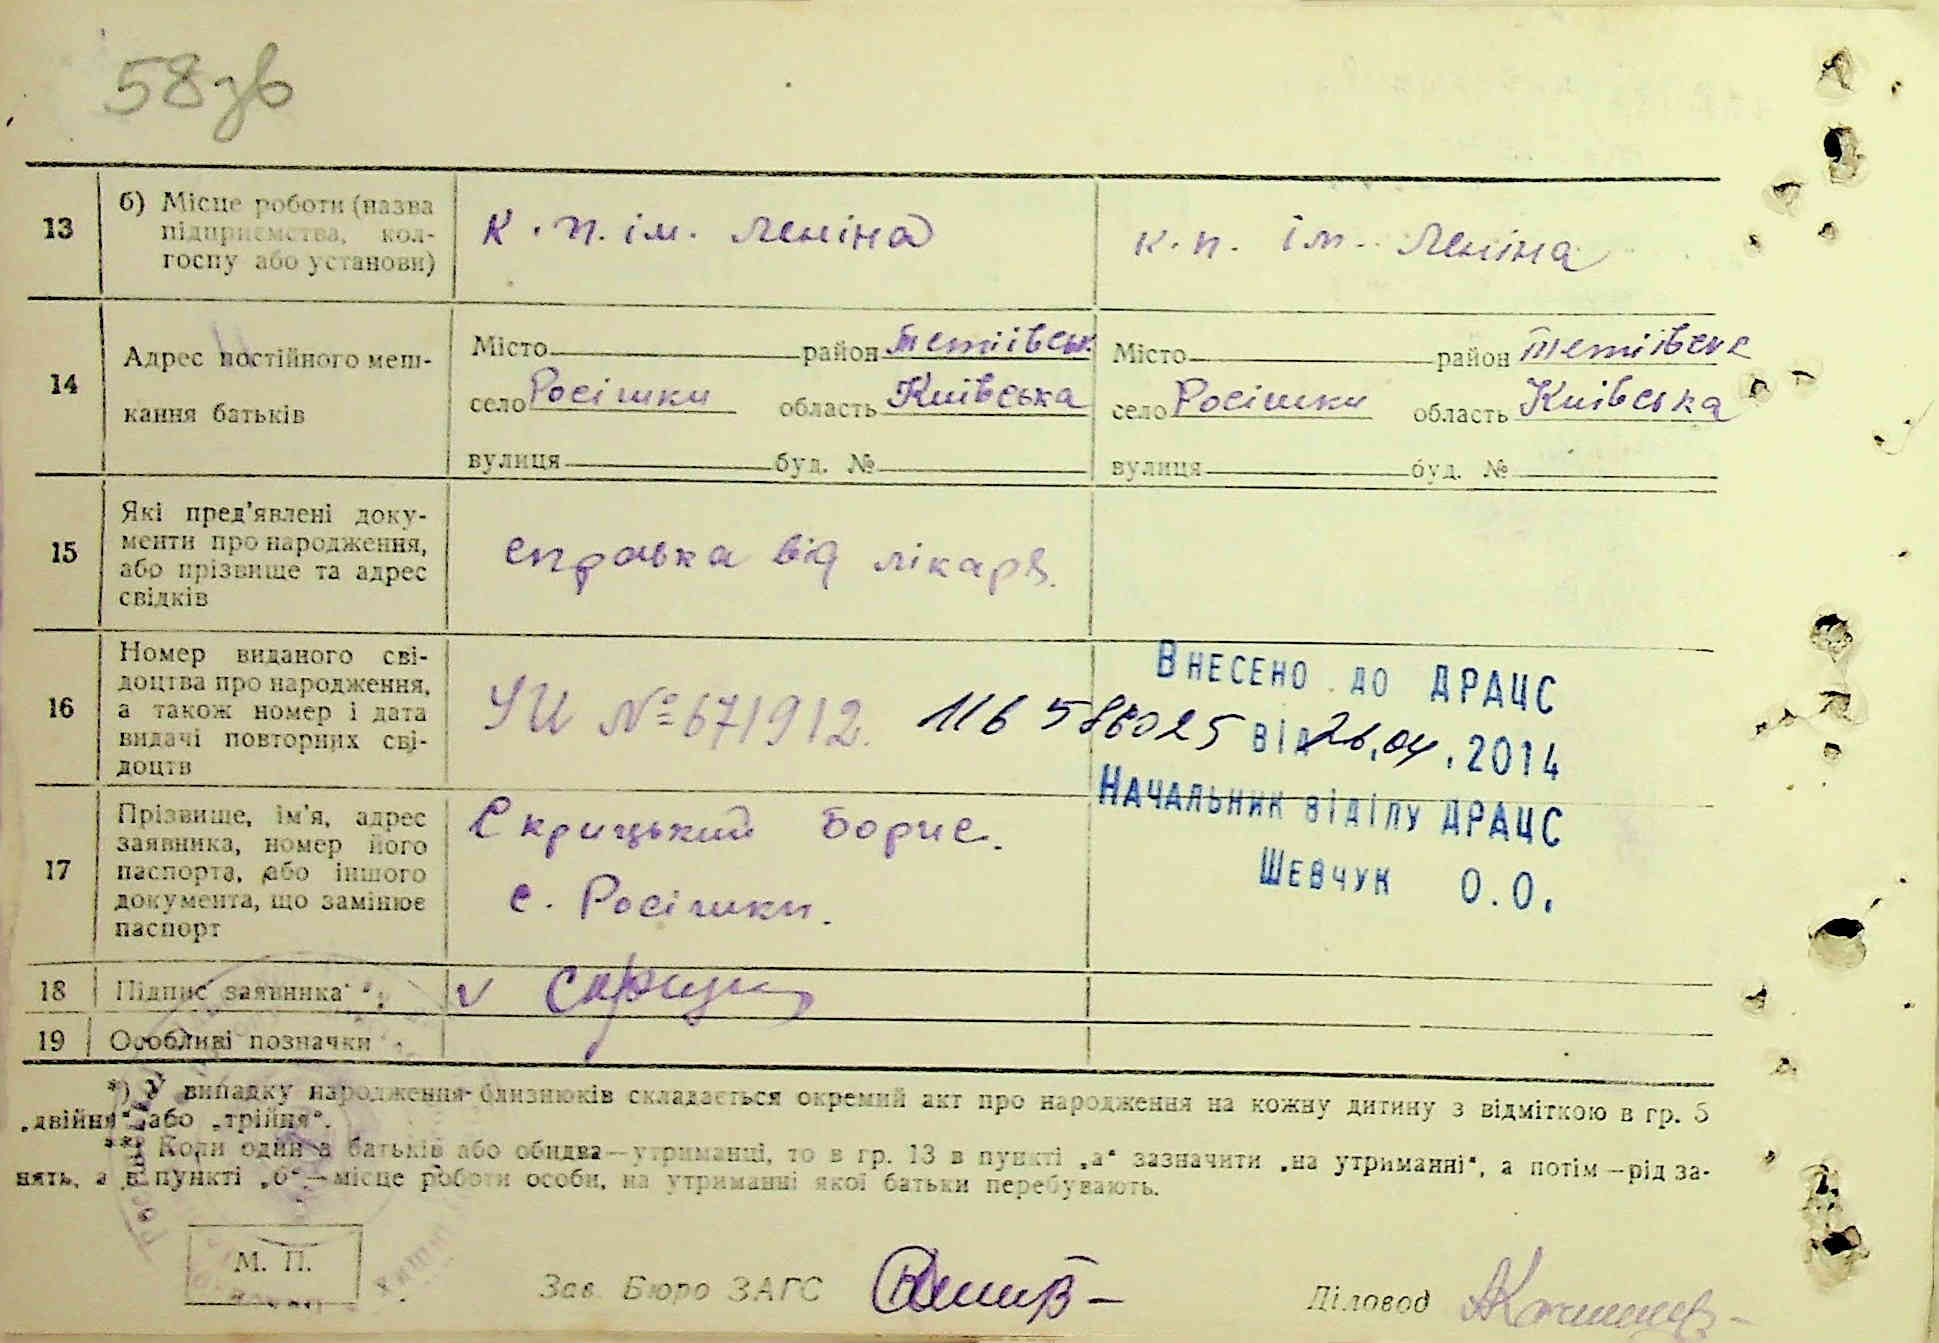 58зв
13
б) Місце роботи (назва
підприємства, кол-
госпу або установи)
к. п. ім. Леніна
к. п. ім. Леніна
14
Адрес постійного меш-
кання батьків
Місто район Тетіївськ.
село Росішки область Київська
вулиця буд. №
Місто район Тетіївськ
село Росішки область Київська
вулиця буд. №
15
Які пред'явлені доку-
менти про народження,
або прізвище та адрес
свідків
справка від лікаря.
16
Номер виданого сві-
доцтва про народження,
а також номер і дата
видачі повторних сві-
доцтв
УИ № 671912.
Внесено до ДРАЦС
116 586025 від 26.04.2014
Начальник відділу ДРАЦС
Шевчук О.О.
17
Прізвище, ім'я, адрес
заявника, номер його
паспорта, або іншого
документа, що замінює
паспорт
Скрицький Борис.
с. Росішки.
18
Підпис заявника
v Скриц
19
Особливі позначки
*) У випадку народження близнюків складається окремий акт про народження на кожну дитину з відміткою в гр. 5
„двійня“ або „трійня“.
**) Коли один з батьків або обидва—утриманці, то в гр. 13 в пункті „а“ зазначити „на утриманні“, а потім—рід за-
нять, а в пункті „б“—місце роботи особи, на утриманні якої батьки перебувають.
М. П.
Зав. Бюро ЗАГС
Діловод